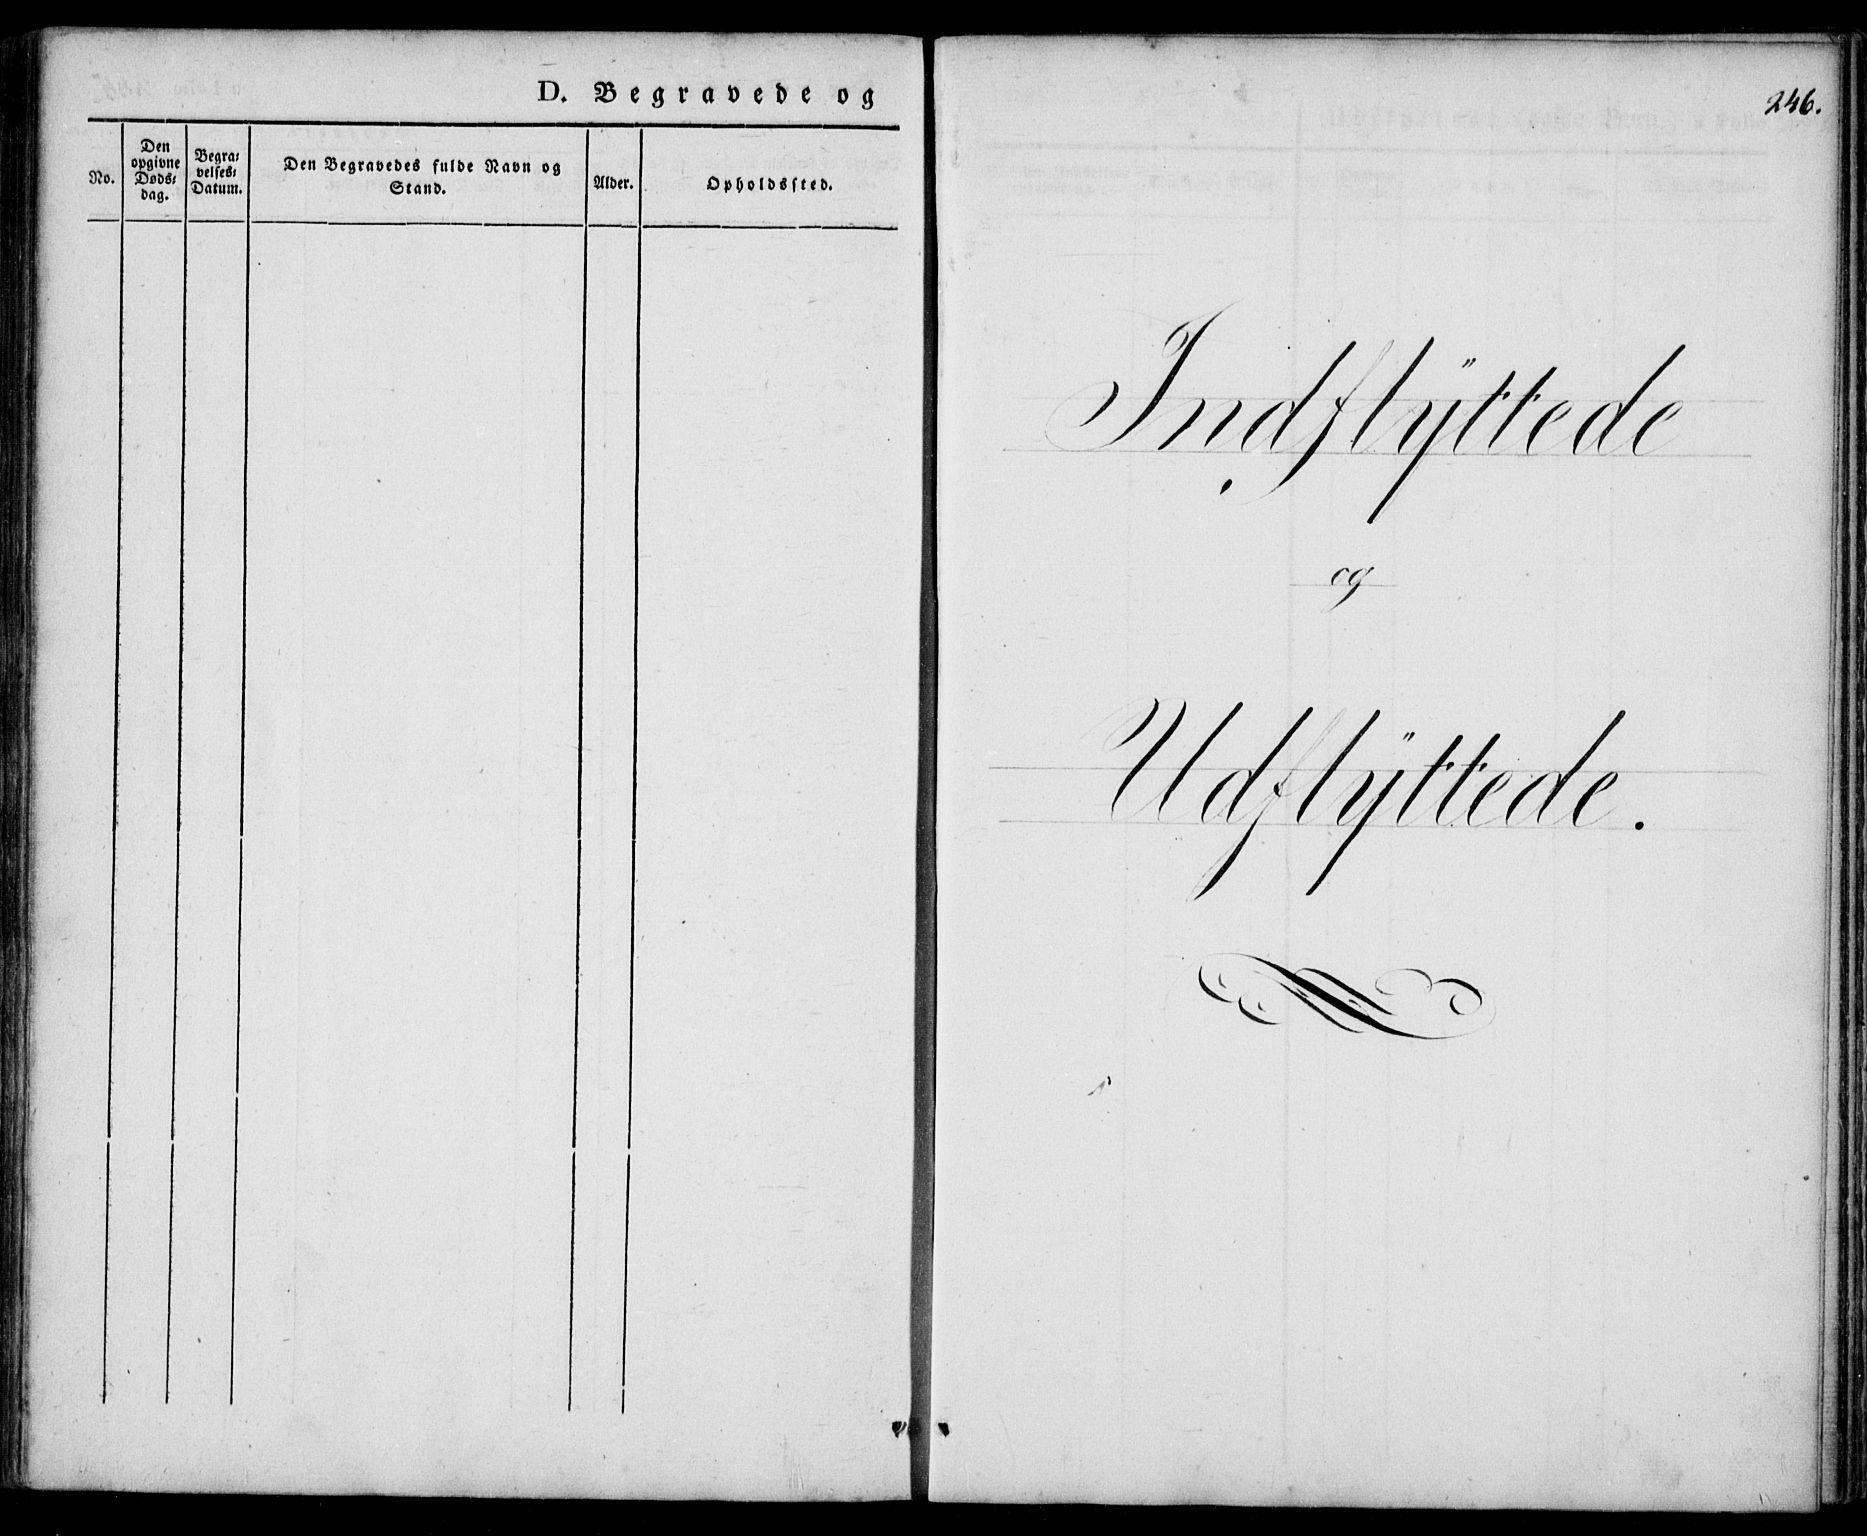 D. Begravede og
No.
Den
opgivne
Døds-
dag.
Begra-
velses-
Datum.
Den Begravedes fulde Navn og
Stand.
Alder.
Opholdssted.
246.
Indflÿttede
og
Udflÿttede.